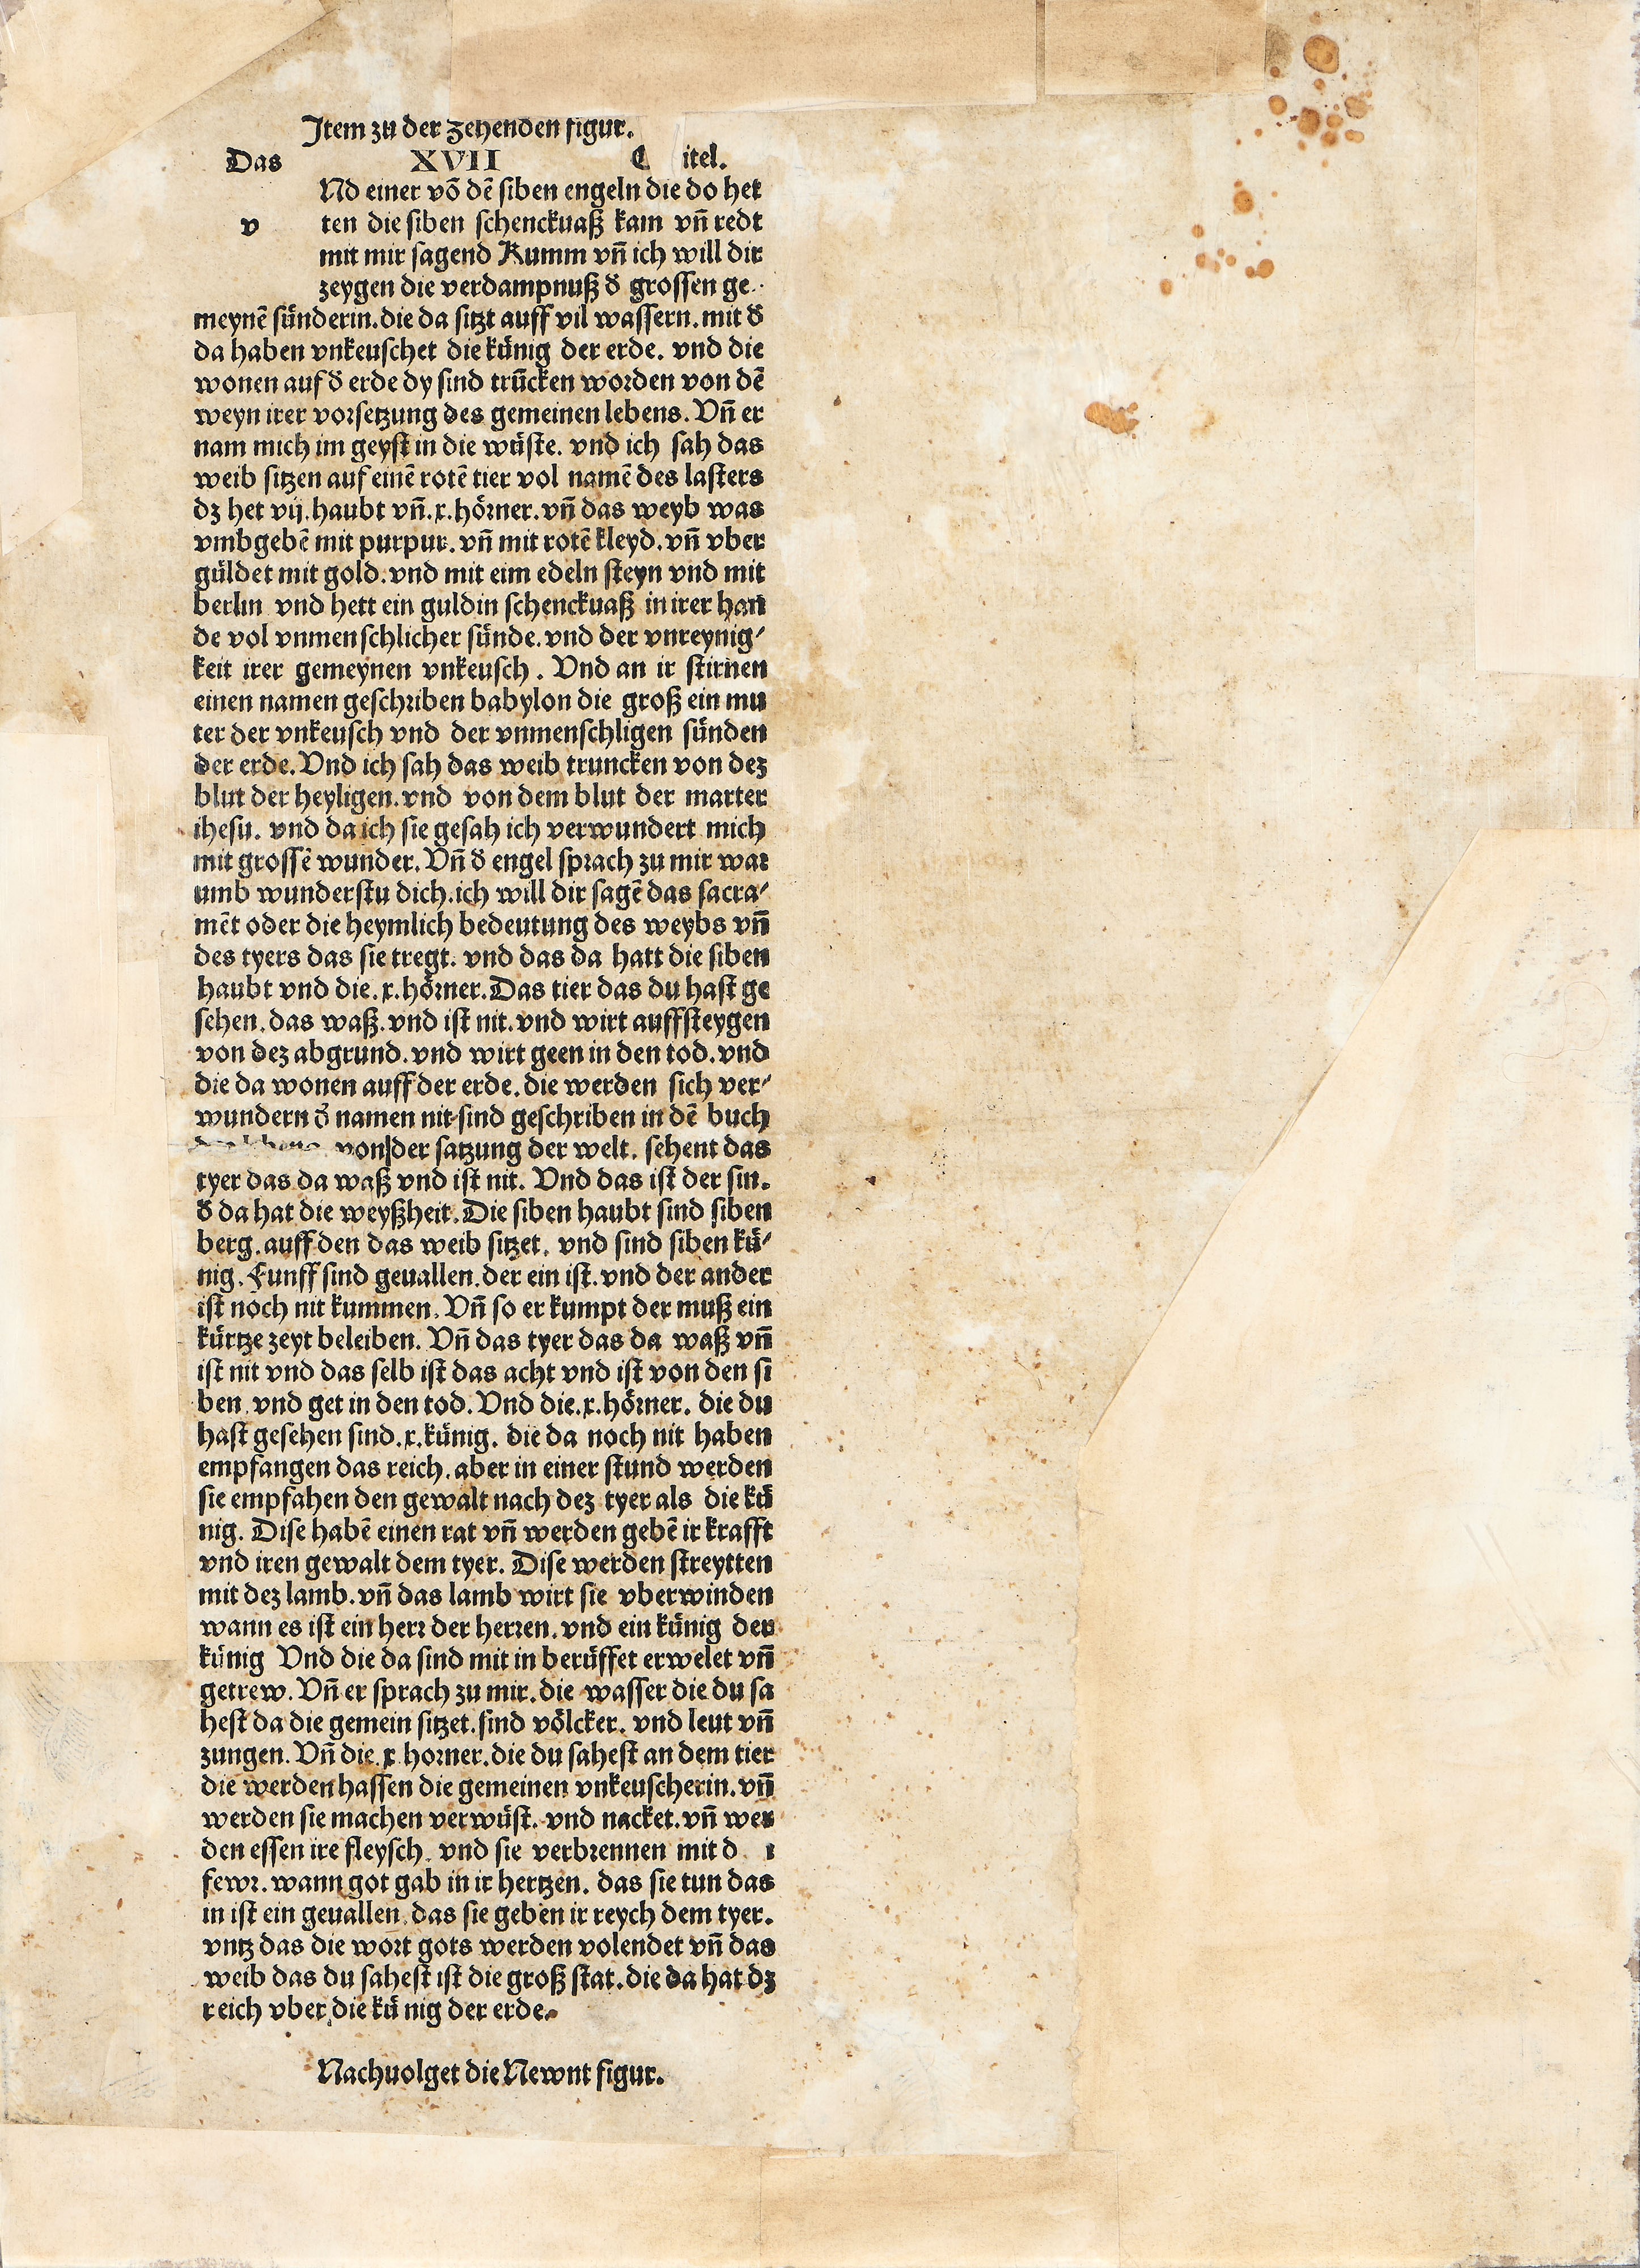 Item zu der Zehenden figur.
Das XVII C itel.
Nd einer võ dẽ siben engeln die do het
v ten die siben schenckuaß kam vñ redt
mit mir sagend Kumm vñ ich will dir
zeygen die verdampnuß d̕ grossen ge
meynẽ sünderin. die da sitzt auff vil wassern. mit d̕
da haben vnkeuschet die künig der erde. vnd die
wonen auf d̕ erde dy sind trũcken worden von dẽ
weyn irer vorsetzung des gemeinen lebens. Vñ er
nam mich im geyst in die wüste. vnd ich sah das
weib sitzen auf einẽ rotẽ tier vol namẽ des lasters
dz het vij. haubt vñ. x. hörner. vñ das weyb was
vmbgebẽ mit purpur. vñ mit rotẽ kleyd. vñ vber
güldet mit gold. vnd mit eim edeln steyn vnd mit
berlin vnd hett ein guldin schenckuaß in irer han
de vol vnmenschlicher sünde. vnd der vnreynig⸗
keit irer gemeynen vnkeusch. Vnd an ir stirnen
einen namen geschriben babylon die groß ein mu
ter der vnkeusch vnd der vnmenschligen sünden
der erde. Vnd ich sah das weib truncken von dez
blut der heyligen. vnd von dem blut der marter
ihesu. vnd da ich sie gesah ich verwundert mich
mit grossẽ wunder. Vñ d̕ engel sprach zu mir war
umb wunderstu dich. ich will dir sagẽ das sacra⸗
mẽt oder die heymlich bedeutung des weybs vñ
des tyers das sie tregt. vnd das da hatt die siben
haubt vnd die. x. hörner. Das tier das du hast ge
sehen. das waß. vnd ist nit. vnd wirt auffsteygen
von dez abgrund. vnd wirt geen in den tod. vnd
die da wonen auff der erde. die werden sich ver⸗
wundern d̕ namen nit sind geschriben in dẽ buch
von der satzung der welt. sehent das
tyer das da waß vnd ist nit. Vnd das ist der sin.
d̕ da hat die weyßheit. Die siben haubt sind siben
berg. auff den das weib sitzet. vnd sind siben kü⸗
nig. Funff sind geuallen. der ein ist. vnd der ander
ist noch nit kummen. Vñ so er kumpt der muß ein
kürtze zeyt beleiben. Vñ das tyer das da waß vñ
ist nit vnd das selb ist das acht vnd ist von den si
ben. vnd get in den tod. Vnd die. x. hörner. die du
hast gesehen sind. x. künig. die da noch nit haben
empfangen das reich. aber in einer stund werden
sie empfahen den gewalt nach dez tyer als die kü
nig. Dise habẽ einen rat vñ werden gebẽ ir krafft
vnd iren gewalt dem tyer. Dise werden streytten
mit dez lamb. vñ das lamb wirt sie vberwinden
wann es ist ein herr der herren. vnd ein künig der
künig Vnd die da sind mit in berüffet erwelet vñ
getrew. Vñ er sprach zu mir. die wasser die du sa
hest da die gemein sitzet. sind völcker. vnd leut vñ
zungen. Vñ die. x. horner. die du sahest an dem tier
die werden hassen die gemeinen vnkeuscherin. vñ
werden sie machen verwüst. vnd nacket. vñ wer
den essen ire fleysch. vnd sie verbrennen mit d
fewr. wann got gab in ir hertzen. das sie tun das
in ist ein geuallen. das sie geben ir reych dem tyer.
vntz das die wort gots werden volendet vñ das
weib das du sahest ist die groß stat. die da hat dz
reich vber die künig der erde.
Nachuolget die Newnt figur.